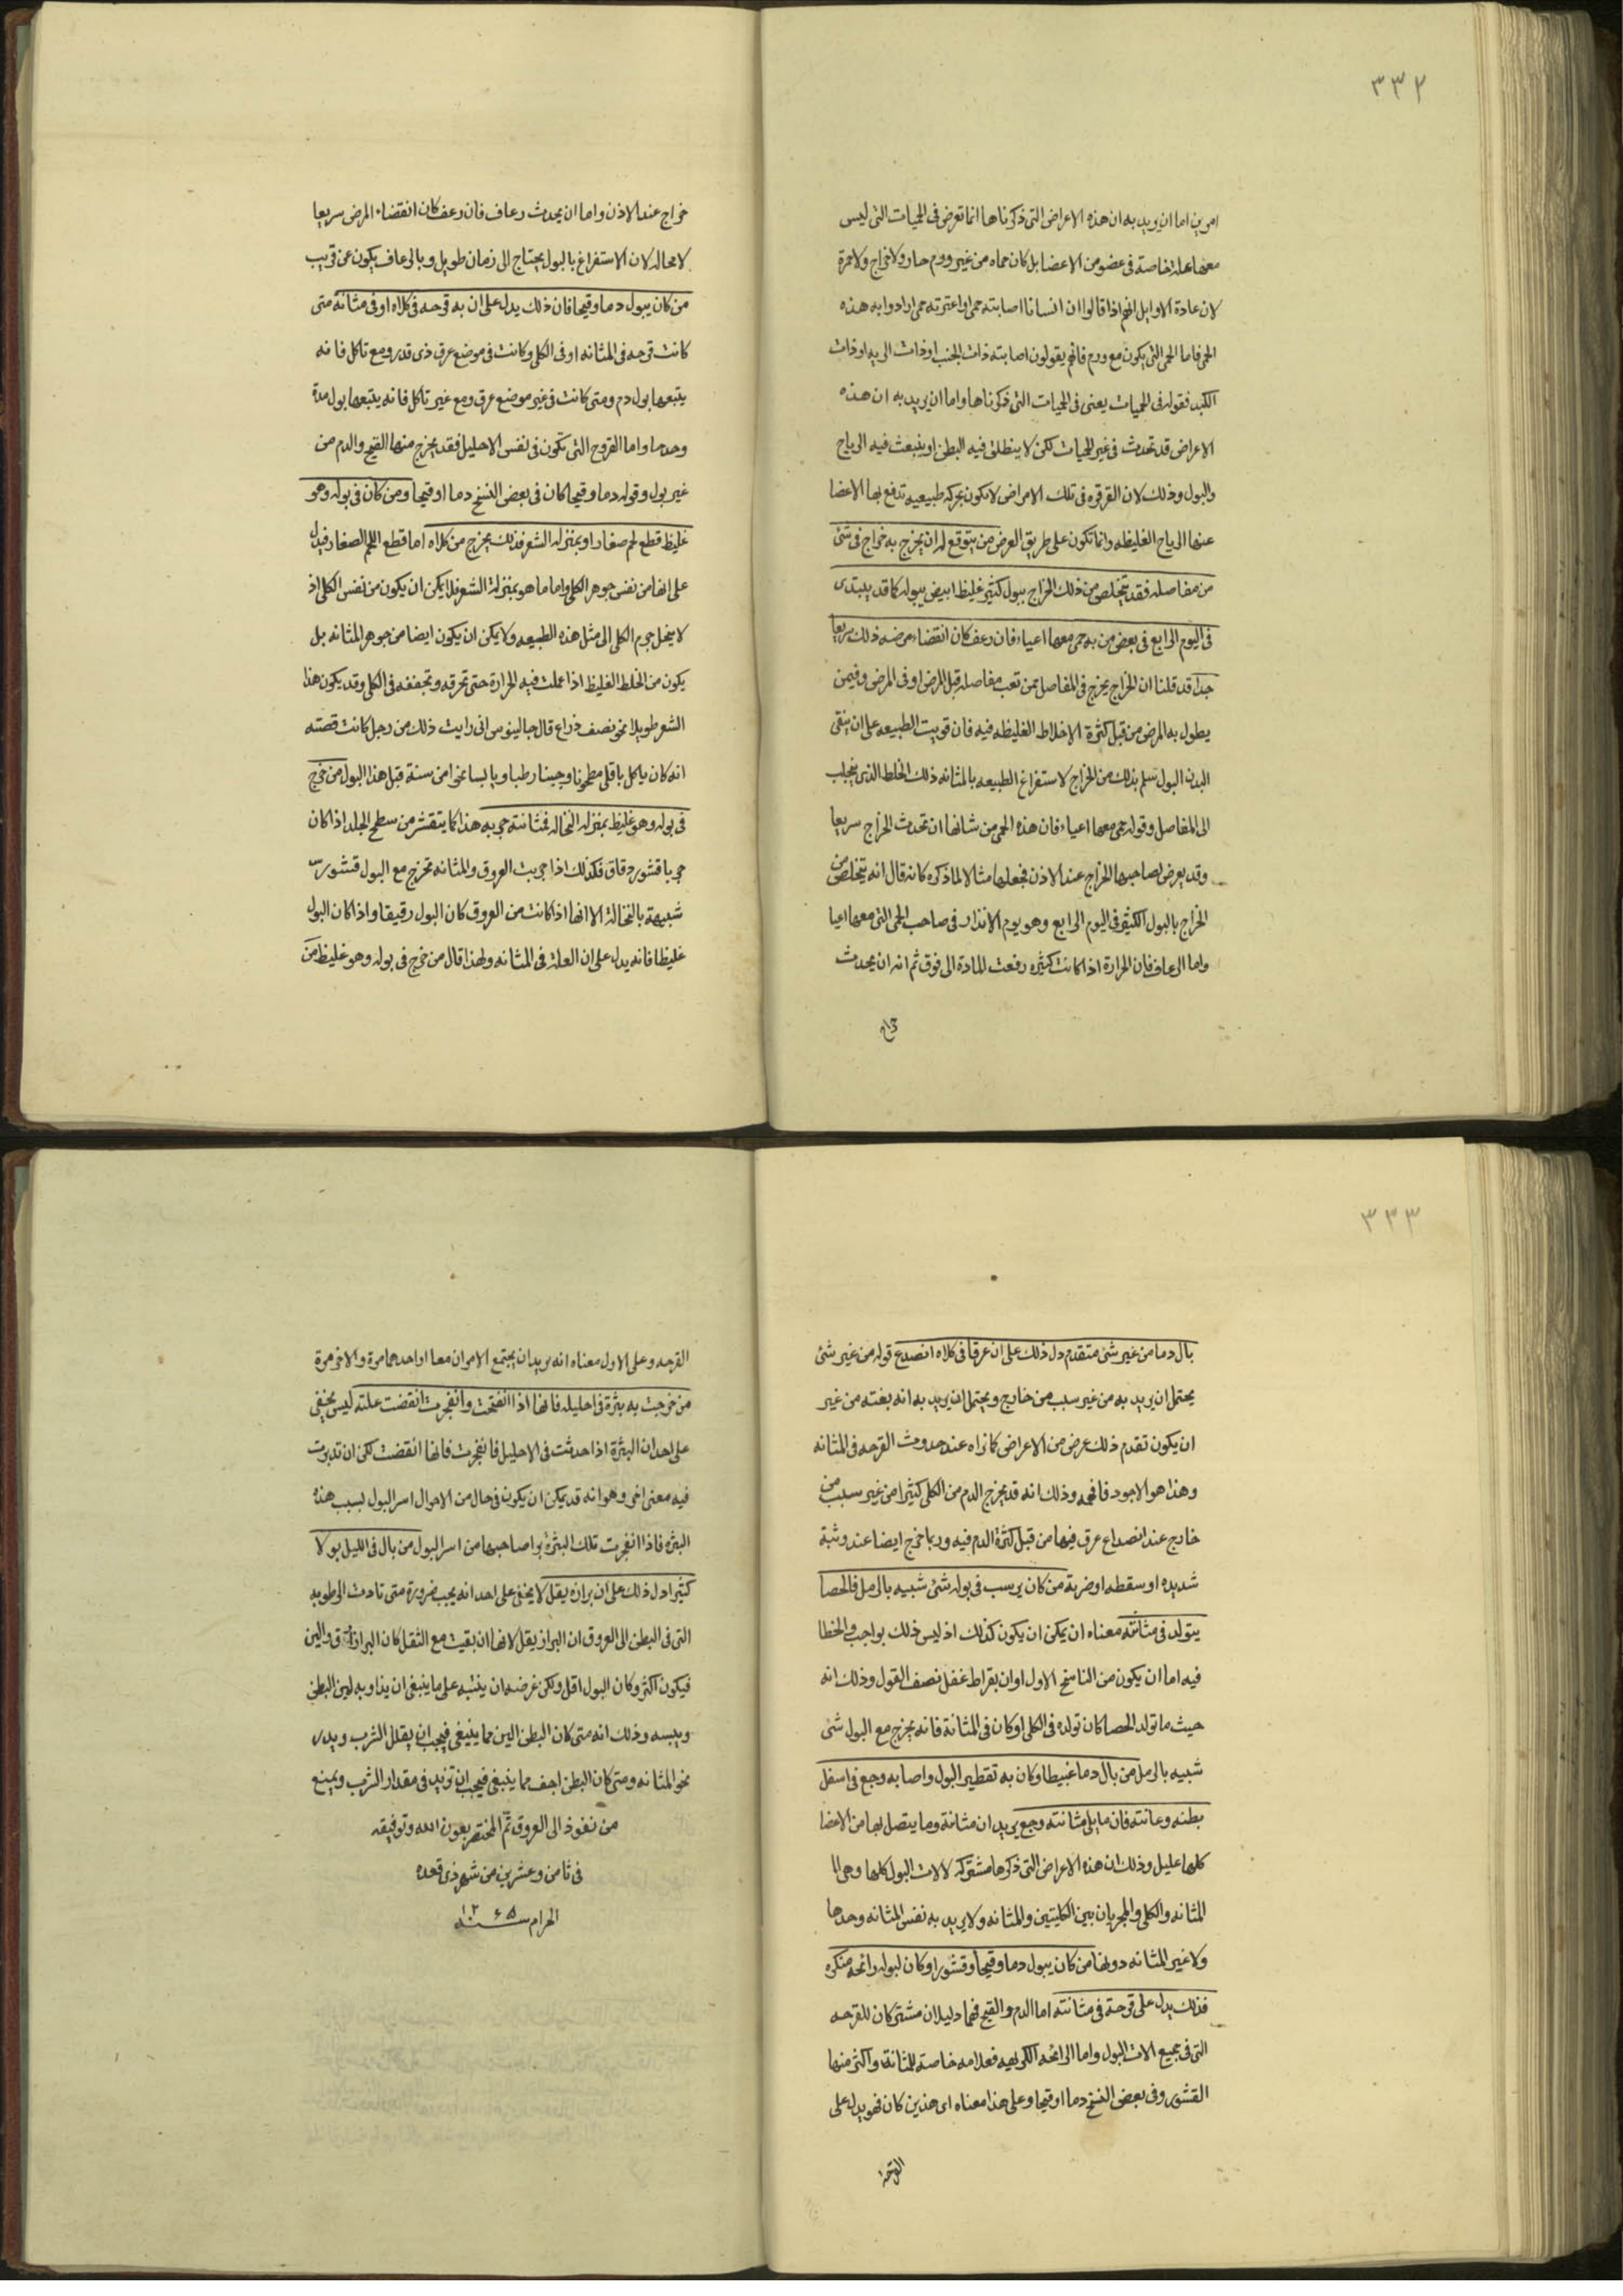 ٣٣٢
امرين اما ان يريد به ان هذه الاعراض التى ذكرناها انما تعرض فى الحميات التى ليس
معها علة خاصة فى عضو من الاعضا بل كان حماه من غير ورم حار ولا خراج ولا حمرة
لان عادة الاوايل انهم اذا قالوا ان انسانا اصابته حمى او اعترته حمى ارادوا به هذه
الحمى فاما الحمى التى يكون مع ورم فانهم يقولون اصابته ذات الجنب او ذات الريه او ذات
الكبد فقوله فى الحميات يعنى فى الحميات التى ذكرناها واما ان يريد به ان هذه
الاعراض قد تحدث فى غير الحميات لكن لا ينطلق فيه البطن او ينبعث فيه الرياح
والبول وذلك لان القرقره فى تلك الامراض لا تكون بحركه طبيعيه تدفع بها الاعضا
عنها الرياح الغليظه وانما تكون على طريق العرض من يتوقع له ان يخرج به خراج فى شئ
من مفاصله فقد يتخلص من ذلك الخراج ببول كثير غليظ ابيض يبوله كما قد يبتدى
فى اليوم الرابع فى بعض من به حمى معها اعياء فان رعف كان انقضاء مرضه ذلك سريعا
جدا قد قلنا ان الخراج يخرج فى المفاصل ممن تعب مفاصله قبل المرض او فى المرض وفيمن
يطول به المرض من قبل كثرة الاخلاط الغليظه فيه فان قويت الطبيعه على ان ينقى
البدن البول سلم بذلك من الخراج لاستفراغ الطبيعه بالمثانه ذلك الخلط الذى ينجلب
الى المفاصل وقوله حمى معها اعياء فان هذه الحمى من شانها ان تحدث الخراج سريعا
وقد يعرض لصاحبها الخراج عند الاذن فجعلها مثالا لما ذكره كانه قال انه يتخلص من
الخراج بالبول الكثير فى اليوم الرابع وهو يوم الانذار فى صاحب الحمى التى معها اعيا
واما الرعاف فان الحرارة اذا كانت كثيره رفعت المادة الى فوق ثم انه ان يحدث
خراج
خراج عند الاذن واما ان يحدث رعاف فان رعف كان انقضاء المرض سريعا
لا محاله لان الاستفراغ بالبول يحتاج الى زمان طويل وبالرعاف يكون عن قريب
من كان يبول دما وقيحا فان ذلك يدل على ان به قرحه فى كلاه او فى مثانة متى
كانت قرحه فى المثانه او فى الكلى وكانت فى موضع عرق ذى قدر ومع تاكل فانه
يتبعها بول دم ومتى كانت فى غير موضع عرق ومع غير تاكل فانه يتبعها بول مدة
وحدها واما القروح التى تكون فى نفس الاحليل فقد يخرج منها القيح والدم من
غير بول وقوله دما وقيحا كان فى بعض النسخ دما او قيحا ومن كان فى بوله وهو
غليظ قطع لحم صغار او بمنزله الشعر فذلك يخرج من كلاه اما قطع اللحم الصغار فيدل
على انها من نفس جوهر الكلى واما ما هو بمنزلة الشعر فلا يمكن ان يكون من نفس الكلى اذ
لا ينحل جرم الكلى الى مثل هذه الطبيعه ولا يمكن ان يكون ايضا من جوهر المثانه بل
يكون من الخلط الغليظ اذا عملت فيه الحرارة حتى تحرقه وتجففه فى الكلى وقد يكون هذا
الشعر طويلا نحو نصف ذراع قال جالينوس انى رايت ذلك من رجل كانت قصته
انه كان ياكل باقلى مطحونا وجبنا رطبا ويابسا نحوا من سنة قبل هذا البول من خرج
فى بوله وهو غليظ بمنزله النخاله فمثانته جربه هذا كما يتقشر من سطح الجلد اذا كان
جربا قشور دقاق فكذلك اذا جربت العروق والمثانه تخرج مع البول قشور
شبيهة بالنخالة الا انها اذا كانت من العروق كان البول رقيقا واذا كان البول
غليظا فانه يدل على ان العلة فى المثانه ولهذا قال من خرج فى بوله وهو غليظ من
٣٣٣
بال دما من غير شئ متقدم دل ذلك على ان عرقا فى كلاه انصدع قوله من غير شئ
يحتمل ان يريد به من غير سبب من خارج ويحتمل ان يريد به انه بغته من غير
ان يكون تقدم ذلك عرض من الاعراض كما نراه عند حدوث القرحه فى المثانه
وهذا هو الاجود فافهمه وذلك انه قد يخرج الدم من الكلى كثيرا من غير سبب من
خارج عند انصداع عرق فيها من قبل كثرة الدم فيه وربما خرج ايضا عند وثبة
شديده او سقطه او ضربة من كان يرسب فى بوله شئ شبيه بالرمل فالحصا
يتولد فى مثانته معناه ان يمكن ان يكون كذلك اذ ليس ذلك بواجب والخطا
فيه اما ان يكون من الناسخ الاول او ان بقراط غفل نصف القول وذلك انه
حيث ما تولد الحصا كان تولده فى الكلى او كان فى المثانة فانه يخرج مع البول شئ
شبيه بالرمل من بال دما غبيطا وكان به تقطير البول واصابه وجع فى اسفل
بطنه وعانته فان ما يلى مثانته وجع يريد ان مثانة وما يتصل بها من الاعضا
كلها عليل وذلك ان هذه الاعراض التى ذكرها مشتركه لالات البول كلها وهى
المثانه والكلى والمجريان بين الكليتين والمثانه ولا يريد به نفس المثانه وحدها
ولا غير المثانه دونها من كان يبول دما وقيحا وقشورا وكان لبوله رائحه منكره
فذلك يدل على قرحة فى مثانته اما الدم والقيح فهما دليلان مشتركان للقرحه
التى فى جميع الات البول واما الرائحه الكريهه فعلامه خاصة للمثانة واكثر منها
القشور وفى بعض النسخ دما او قيحا وعلى هذا معناه اى هذين كان فهو يدل على
القرحه
القرحه وعلى الاول معناه انه يريد ان يجتمع الامران معا او احدهما مرة والاخر مرة
من خرجت به بثرة فى احليله فانها اذا انفتحت وانفجرت انقضت علته ليس يخفى
على احد ان البثرة اذا حدثت فى الاحليل فانفجرت فانها انقضت لكن ان تدبرت
فيه معنى اخر وهو انه قد يمكن ان يكون فى حال من الاحوال اسر البول بسبب هذه
البثره فاذا انفجرت تلك البثرة برا صاحبها من اسر البول من بال فى الليل بولا
كثيرا دل ذلك على ان برازه يقل لا يخفى على احد انه يجب ضرورة متى تادت الرطوبه
التى فى البطن الى العروق ان البراز يقل لانها ان بقيت مع الثقل كان البراز ارق والين
فيكون اكثر وكان البول اقل ولكن غرضه ان ينتبه على ما ينبغى ان يداوبه لين البطن
ويبسه وذلك انه متى كان البطن الين مما ينبغى فيجب ان يقلل الشرب ويدر
نحو المثانه ومتى كان البطن اجف مما ينبغى فيجب ان تزيد فى مقدار الشرب ويمنع
من نفوذ الى العروق تم المختصر بعون الله وتوفيقه
فى ثامن وعشرين من شهر ذى قعده
الحرام سنه ١٢٤٥